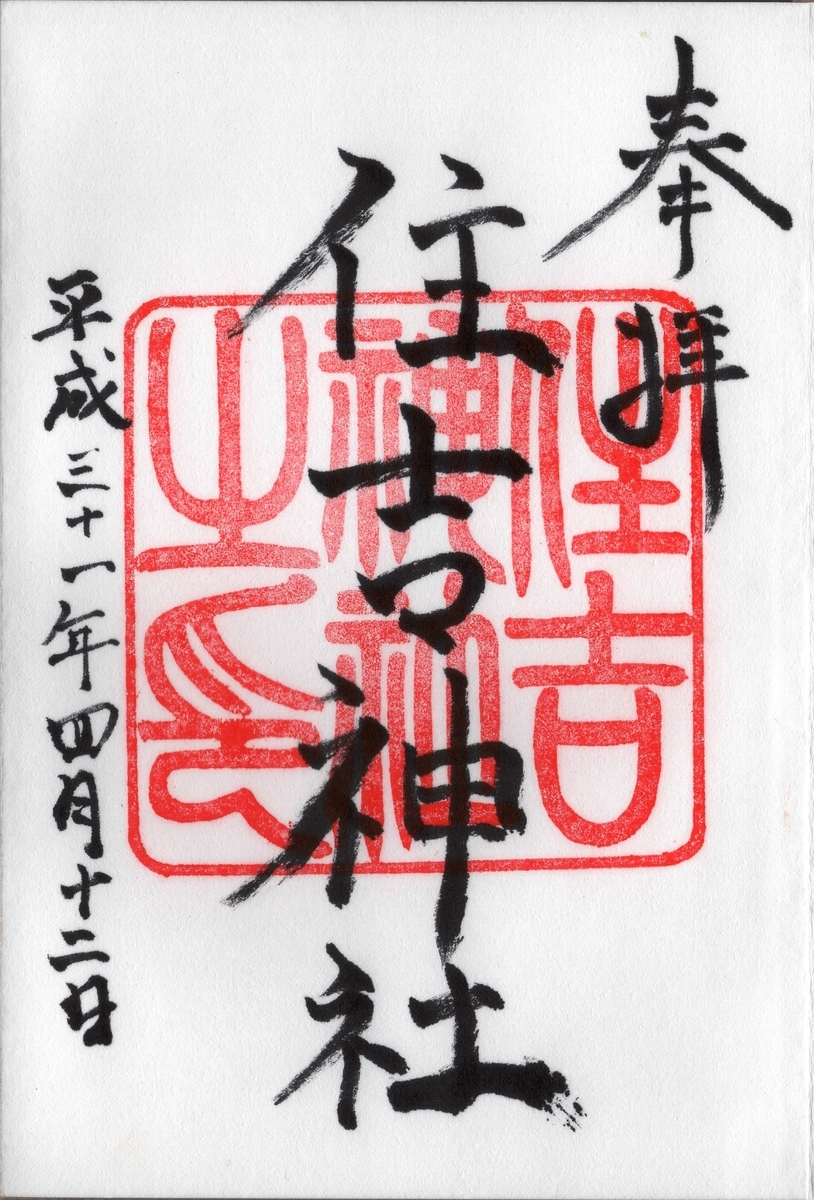 奉拝
住吉神社
平成三十一年四月十二日
住吉
神社
之印